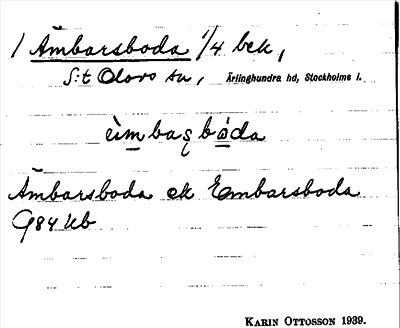 1 Ämbarsboda 1/4 bek,
S:t Olovs sn, Ärlinghundra hd, Stockholms l.
Ämbarsboda ek Embarsboda
KARIN OTTOSSON 1939.